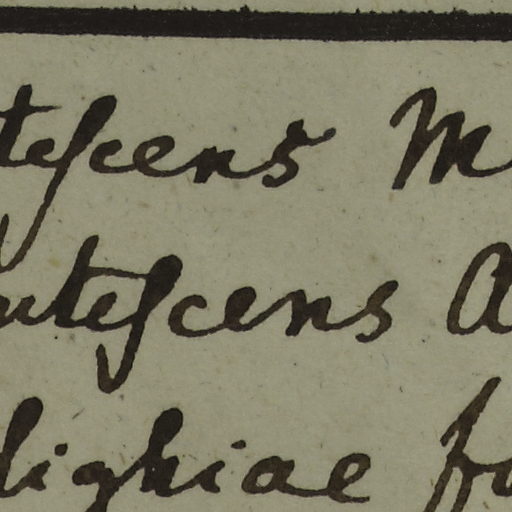 tescens M
utescens A
lighiae fo